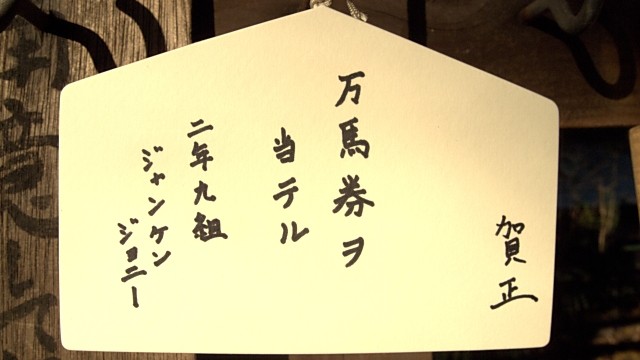 賀正
万馬券ヲ
当テル
二年九組
ジャンケン
ジョニー